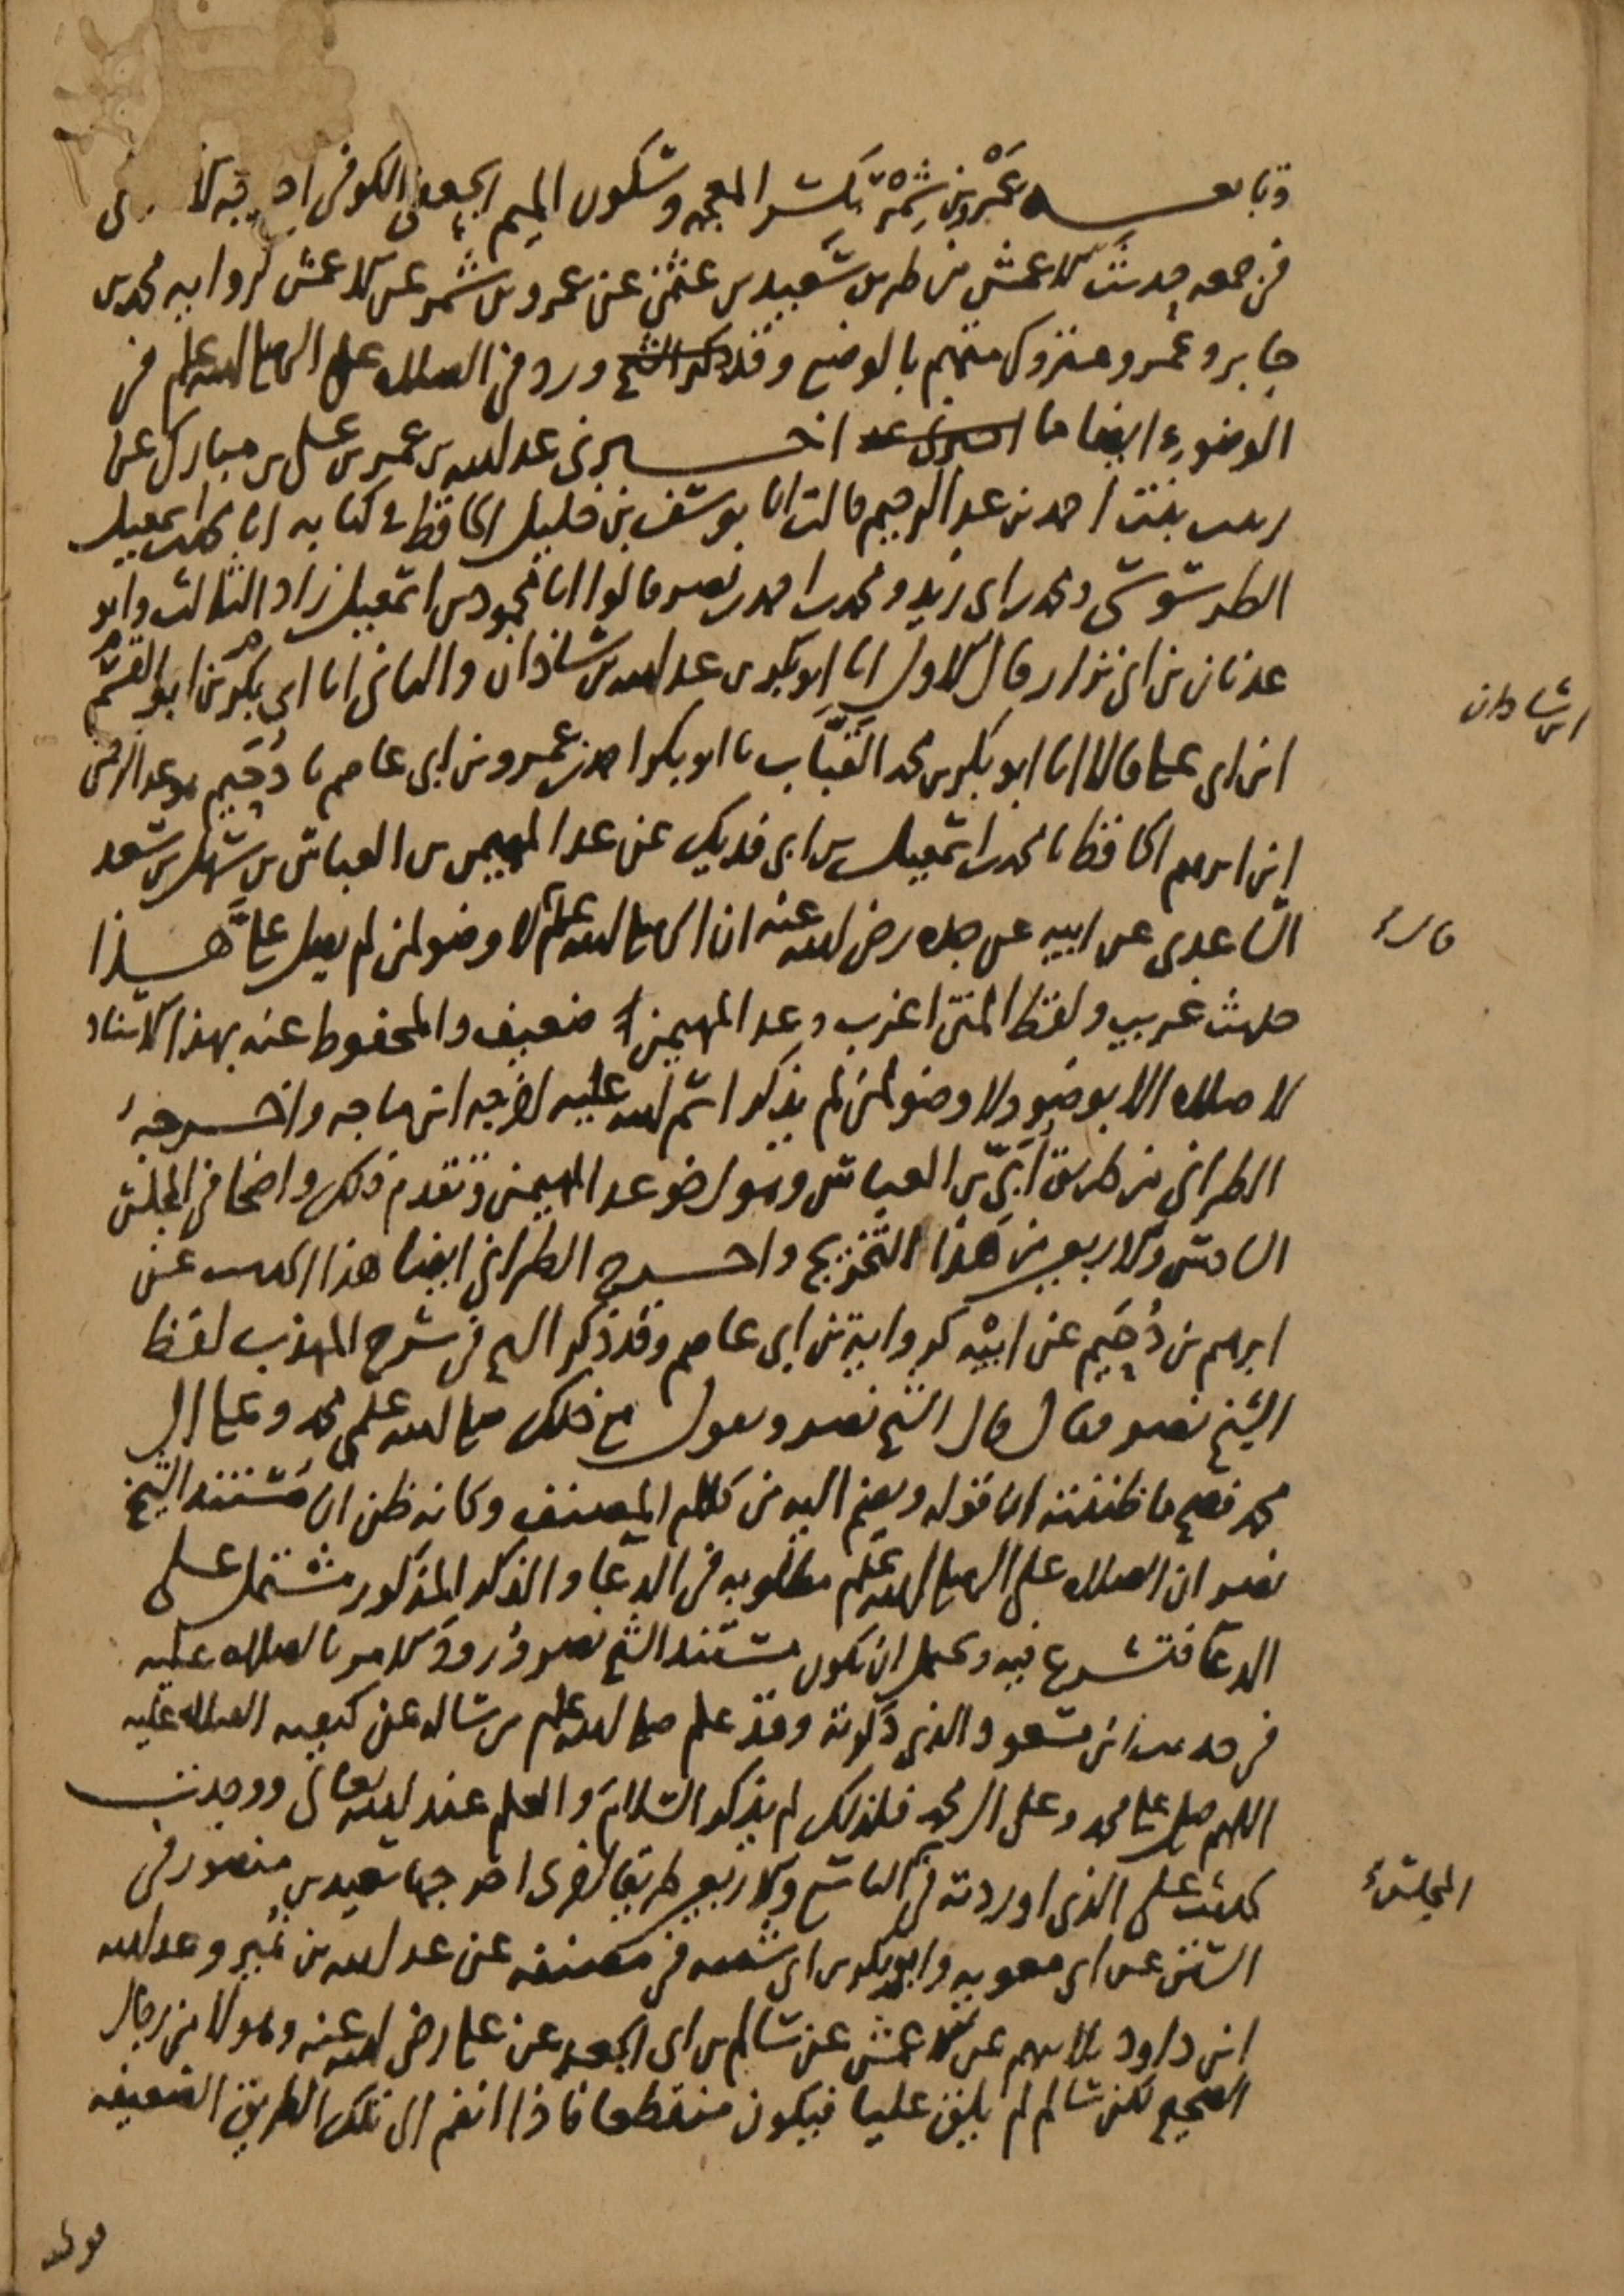 وتابعه عَمْرو بن شِمْر بكسر المعجمه وسكون الميم الجعفى الكوفى اخرجه
فى جمعه حديث الاعمش من طريق سعيد بن عثمن عن عمرو بن شمر عن الاعمش كرواية محمد بن
جابر وعمرو متروك متهم بالوضع وقد ورد فى الصلاه على النبي صلى الله عليه وسلم فى
الوضوء ايضا ما اخبرنى عبد الله بن عمر بن على بن مبارك عن
زينب بنت احمد بن عبد الرحيم قالت انا يوسف بن خليل الحافظ فى كتابه انا اسمعيل
الطرسوسى ومحمد بن ابى زيد ومحمد بن احمد بن نصر قالوا انا محمود بن اسمعيل زاد الثالث وابو
عدنان بن ابى نزار قال الاول انا ابو بكر بن عبد الله بن شاذان والثانى انا ابى بكر بن ابو القسم
ابن شاذان
ابن ابى على قالا انا ابو بكر بن محمد القَبَّاب نا ابو بكر احمد بن عمرو بن ابى عاصم نا دُحَيم هو عبد الرحمن
ابن ابرهيم الحافظ نا محمد بن اسمعيل بن ابى فديك عن عبد المهيمن بن العباس بن سهل بن سعد
الساعدى عن ابيه عن جده رضى الله عنه ان النبي صلى الله عليه وسلم لا وضو لمن لم يصل علىَّ هذا
قال
حديث غريب ولفظ المتن اغرب وعبد المهيمن ضعيف والمحفوظ عنه بهذا الاسناد
لا صلاه الا بوضوء ولا وضو لمن لم يذكر اسم الله عليه اخرجه ابن ماجه واخرجه
الطبرانى من طريق اُبَىّ بن العباس وهو اخو عبد المهيمن وتقدم ذلك واضحا فى المجلس
السادس والاربعين من هذا التخريج واخرج الطبرانى ايضا هذا الحديث عن
ابرهيم بن دُحَيم عن ابيه كرواية بن ابى عاصم وقد ذكر الشيخ فى شرح المهذب لفظ
الشيخ نصر فقال قال الشيخ نصر ويقول مع ذلك صلى الله على محمد وعلى ال
محمد فصح ما ظننته ان قوله ويضم اليه من كلام المصنف وكانه ظن ان مستند الشيخ
نصر ان الصلاه على النبي صلى الله عليه وسلم مطلوبه فى الدعا والذكر المذكور مشتمل على
الدعا فتشرع فيه ويحتمل ان يكون مستند الشيخ نصر وُرودُ الامر بالصلاه عليه
فى حديث ابن مسعود الذى ذكرته وقد علم صلى الله عليه وسلم من ساله عن كيفيه الصلاه عليه
اللهم صل على محمد وعلى ال محمد فلذلك لم يذكر السلام والعلم عند الله تعالى ووجدت
لحديث على الذى اوردته فى التاسع والاربعين طريقا اخرى اخرجها سعيد بن منصور فى
المجلس
السنن عن ابى معويه وابو بكر بن ابى شيبه فى مصنفه عن عبد الله بن نمير وعبد الله
ابن داود ثلاثتهم عن الاعمش عن سالم بن ابى الجعد عن على رضى الله عنه وهولا من رجال
الصحيح لكن سالم لم يلق عليا فيكون منقطعا فاذا انضم الى تلك الطريق الضعيفه